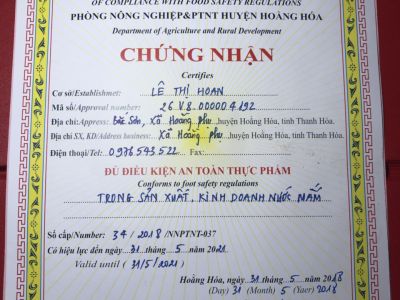 OF COMPLIANCE WITH FOOD SAFETY REGULATIONS
PHÒNG NÔNG NGHIỆP&PTNT HUYỆN HOẰNG HÓA
Department of Agriculture and Rural Development
CHỨNG NHẬN
Certifies
Cơ sở/Establishmet: LÊ THỊ HOAN
Mã số/Approval number: 26.V.8.00004192
Địa chỉ: Bắc Sơn, Xã Hoằng Phụ, huyện Hoằng Hóa, tỉnh Thanh Hóa.
Địa chỉ SX, KD/Address business: Xã Hoằng Phụ, huyện Hoằng Hóa, tỉnh Thanh Hóa.
Điện thoại/Tel: 0976543522 Fax:
ĐỦ ĐIỀU KIỆN AN TOÀN THỰC PHẨM
Conforms to foot safety regulations
TRONG SẢN XUẤT, KINH DOANH NƯỚC MẮM
Số cấp/Number: 34/2018/NNPTNT-037
Có hiệu lực đến ngày 31 tháng 5 năm 2021
Valid until (31/5/2021)
Hoằng Hóa, ngày 31 tháng 5 năm 2018
(Day) 31 (Month) 5 (Yaer) 2018